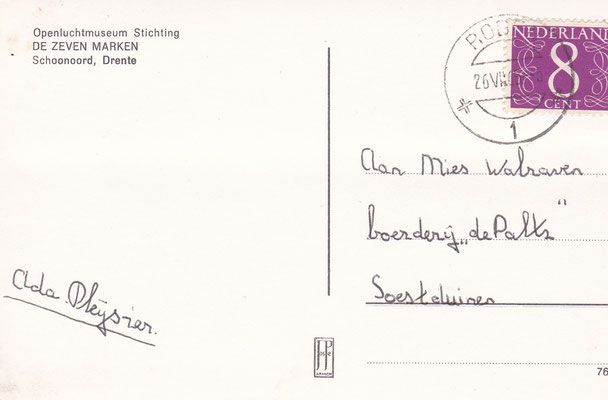 Openluchtmuseum Stichting
DE ZEVEN MARKEN
Schoonoord, Drente
NEDERLAND
8
CENT
1
Aan Mies Walraven
boerderij „de Paltz"
Soestduinen
Ada Pleysier.
JP
76